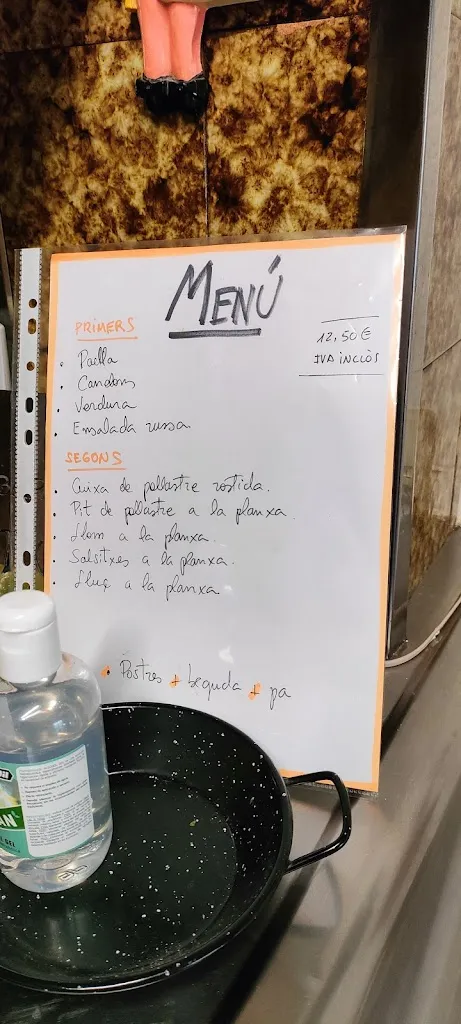 MENÚ
12,50 €
IVA inclòs
PRIMERS
• Paella
• Canelons
• Verdura
• Ensalada russa
SEGONS
• Cuixa de pollastre rostida.
• Pit de pollastre a la planxa
• Llom a la planxa.
• Salsitxes a la planxa.
• Lluç a la planxa
• Postres + beguda + pa
GEL